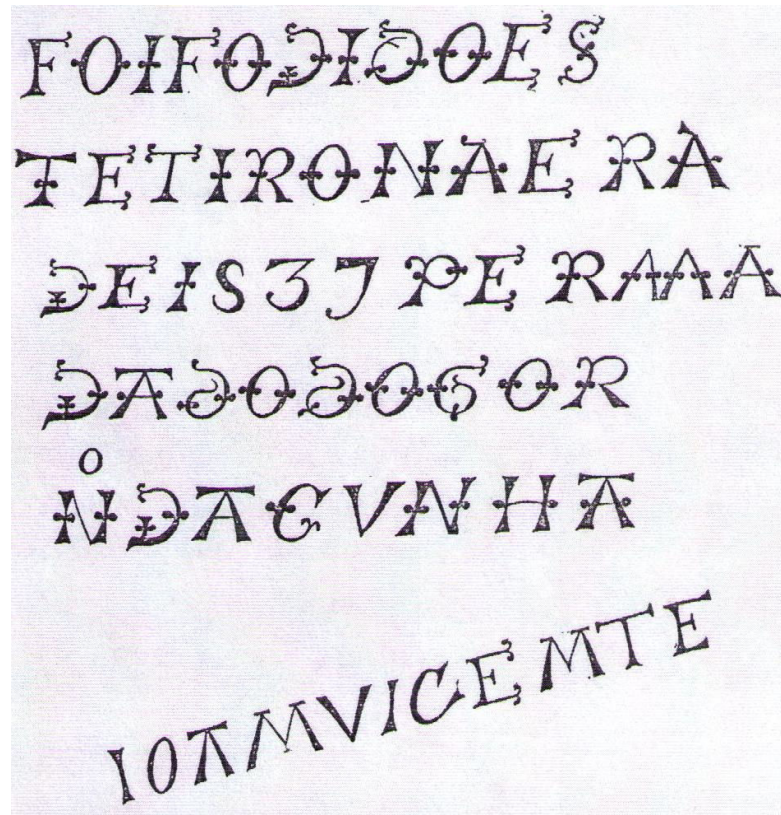 FOIFODIDOES
TETIRONAE RA
DE I537 PE RMA
DADODOGOR
O
NDACVNHA
IOAMVICEMTE